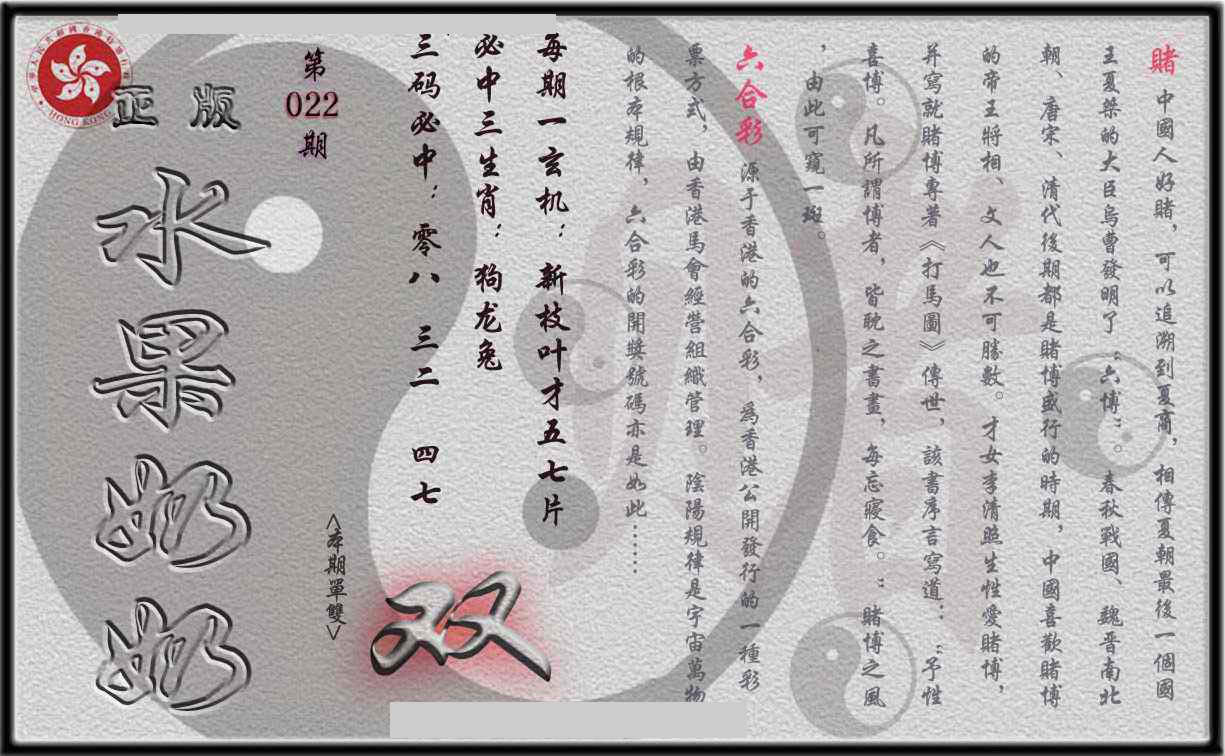 賭 中國人好賭，可以追溯到夏商，相傳夏朝最後一個國
王夏桀的大臣烏曹發明了“六博”。春秋戰國、魏晋南北
朝、唐宋、清代後期都是賭博盛行的時期，中國喜歡賭博
的帝王將相、文人也不可勝數。才女李清照生性愛賭博，
并寫就賭博專著《打馬圖》傳世，該書序言寫道：“予性
喜博。凡所謂博者，皆耽之書畫，每忘寢食。”賭博之風
，由此可窺一斑。
六合彩 源于香港的六合彩，為香港公開發行的一種彩
票方式，由香港馬會經營組織管理。陰陽規律是宇宙萬物
的根本規律，六合彩的開獎號碼亦是如此……
每期一玄机：新枝叶才五七片
必中三生肖：狗龙兔
三码必中：零八 三二 四七
<本期單雙>
双
第
022
期
正版
水果奶奶
HONG KONG